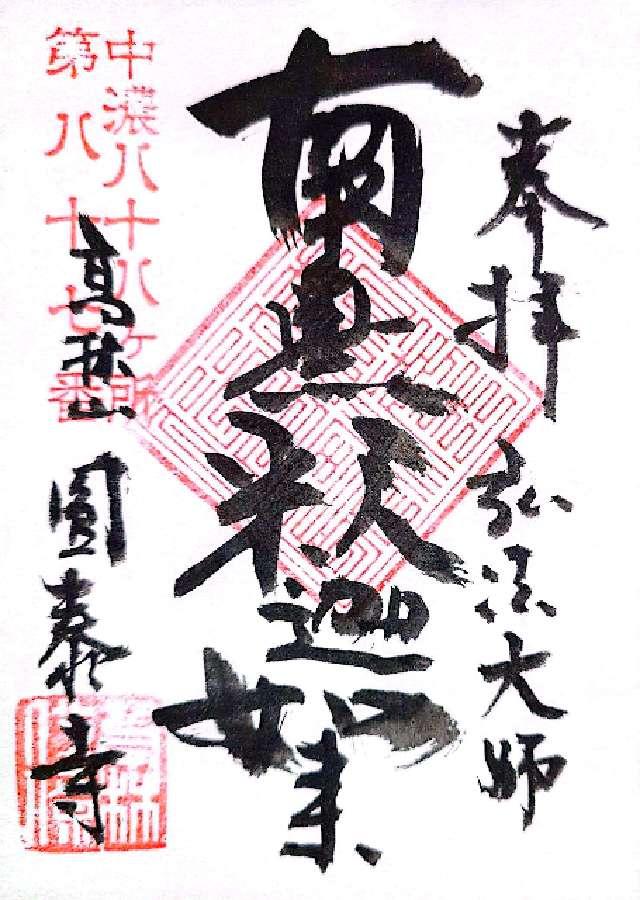 奉拝 弘法大師
南無釈迦如来
中濃八十八ヶ所
第八十七番
圓泰寺